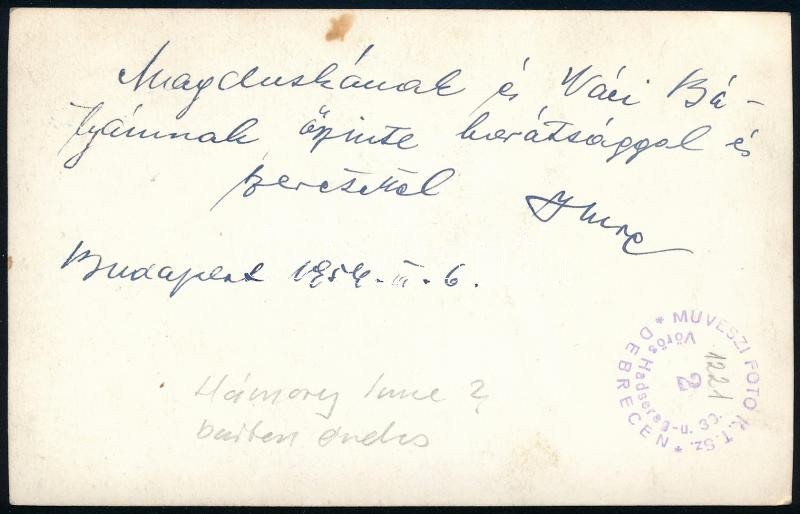 Magduskának és Váci Bá-
tyámnak őszinte barátsággal és
szeretettel Imre
Budapest 1954. II. 6.
Hámory Imre ?
bariton énekes
* MŰVÉSZI FOTÓ K.T.SZ. * DEBRECEN
Vörös Hadsereg-u. 30.
2
1221